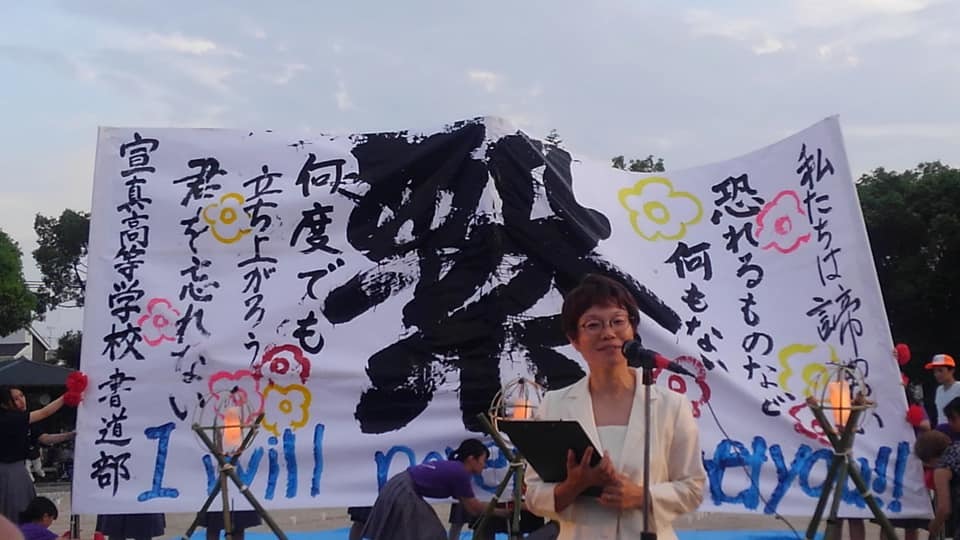 私たちは諦めない
恐れるものなど
何もない
祭
何度でも
立ち上がろう
君を忘れない
宣真高等学校 書道部
I will never get you!!